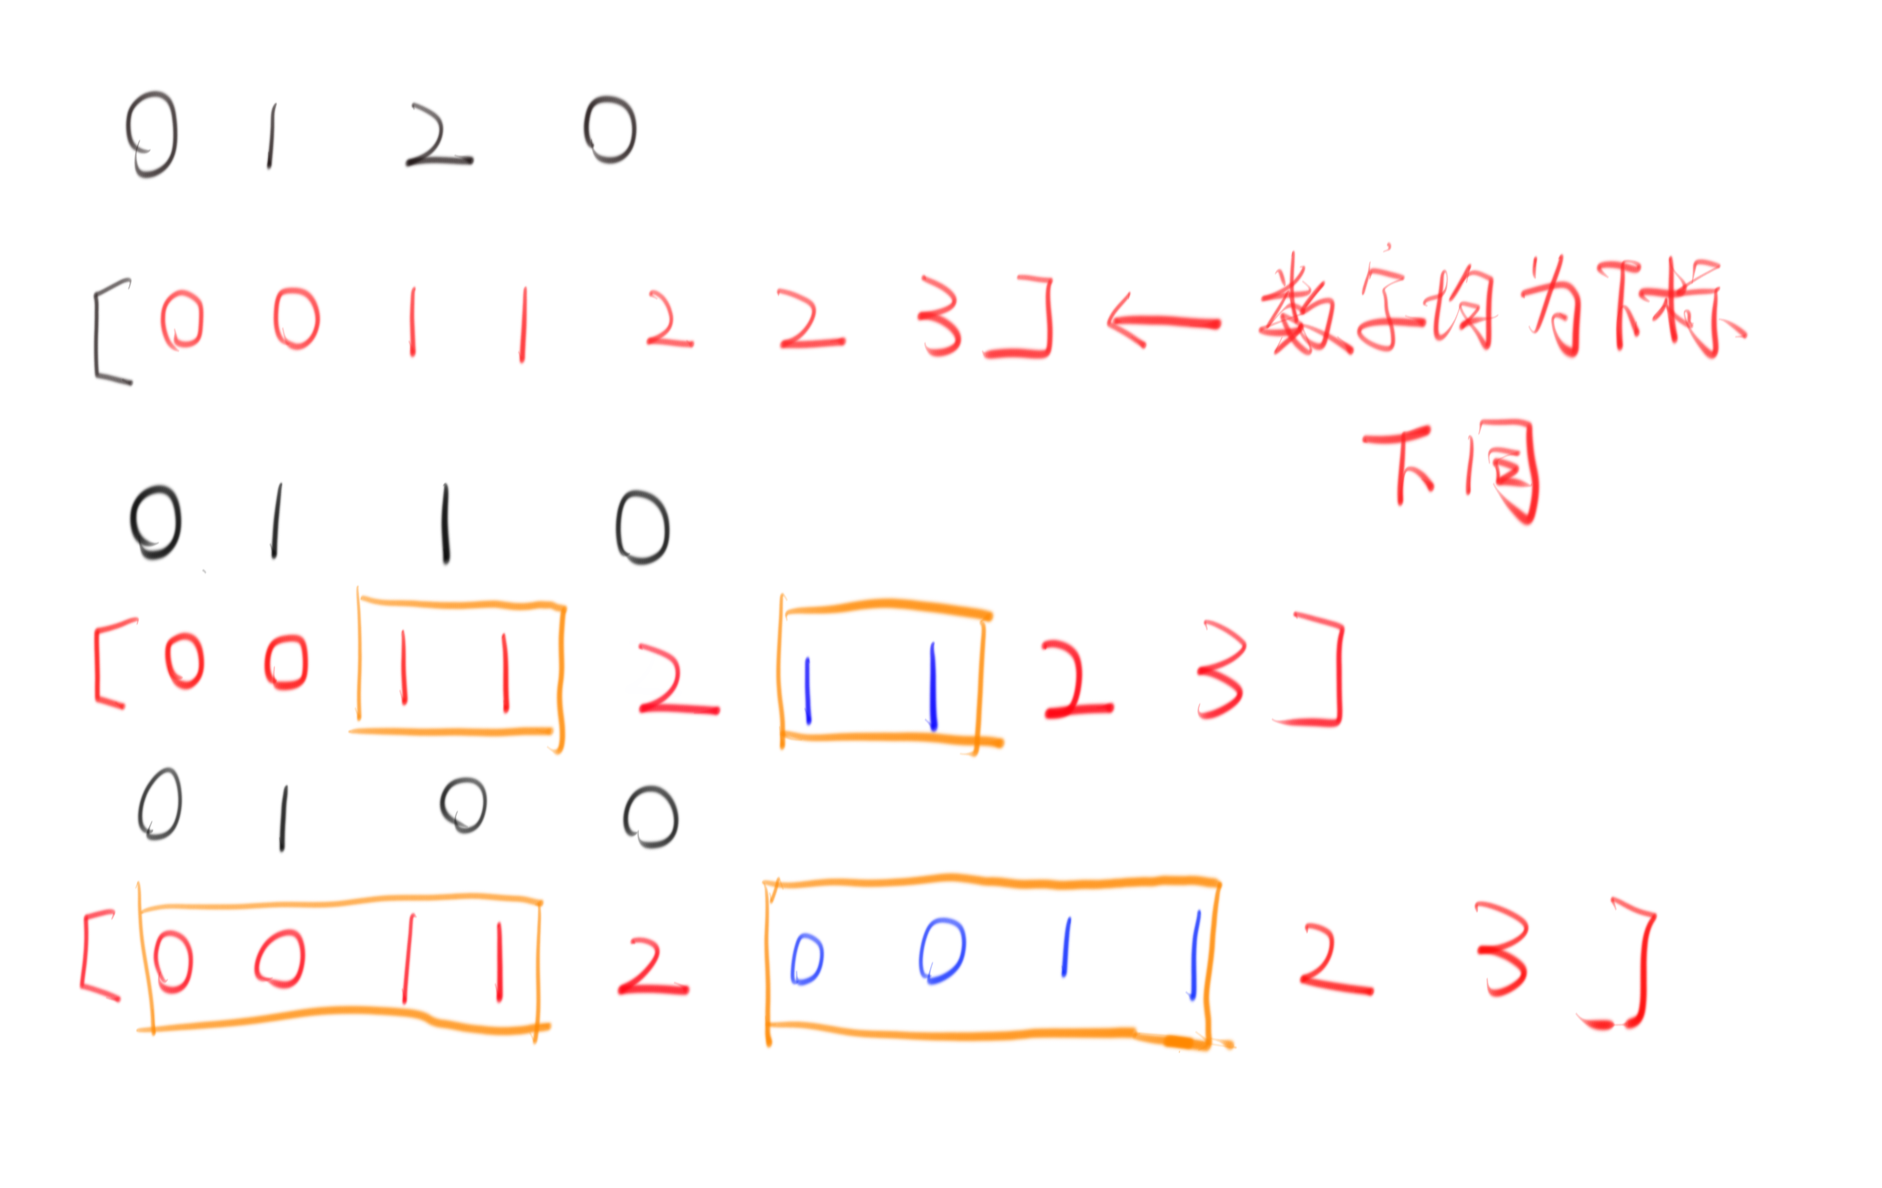 0 1 2 0
[0 0 1 1 2 2 3] ← 数字均为下标
下同
0 1 1 0
[0 0 1 1 2 1 1 2 3]
0 1 0 0
[0 0 1 1 2 0 0 1 1 2 3]